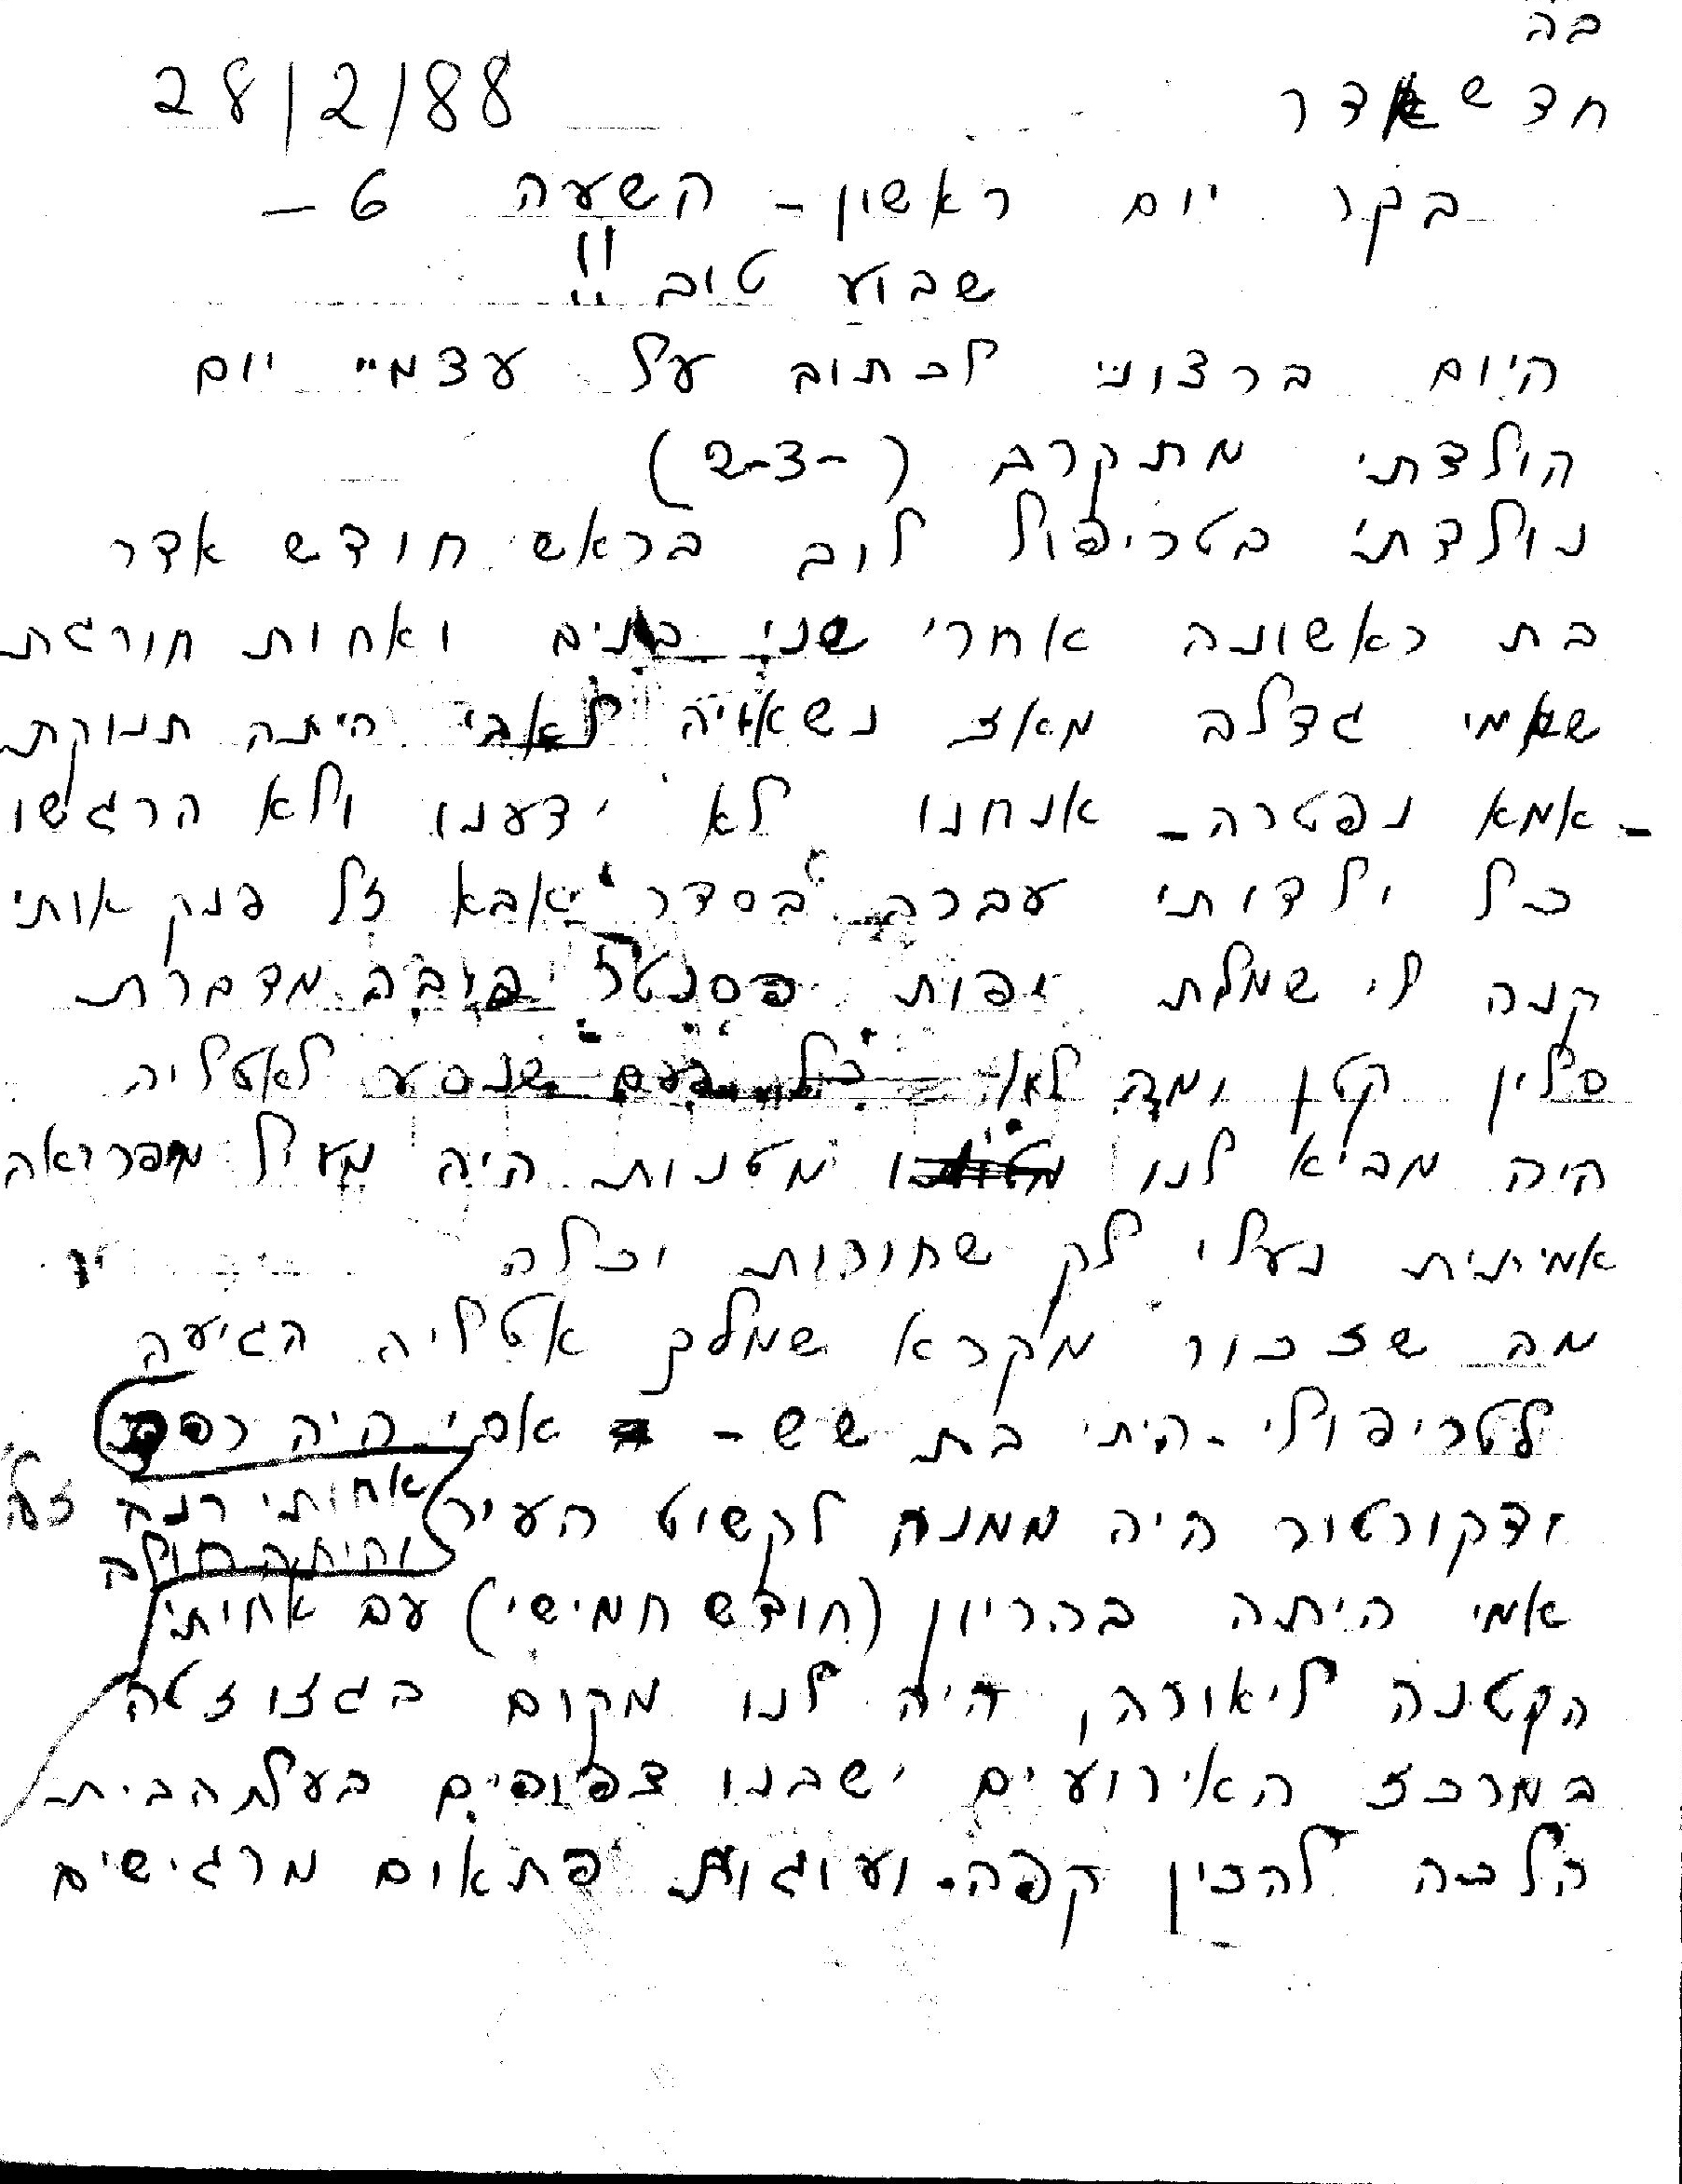 בה
28/2/88
חדש אדר
בקר יום ראשון - השעה 6 -
שבוע טוב !!
היום ברצוני לכתוב על עצמי יום
הולדתי מתקרב (2-3-)
נולדתי בטריפול לוב בראש חודש אדר
בת ראשונה אחרי שני בנים ואחות חורגת
שאמי גדלה מאז נשאיה לאבי היתה תנוקת
- אמא נפטרה - אנחנו לא ידענו ולא הרגשו
כל ילדותי עברה בסדר אבא זל פנק אותי
קנה לי שמלת יפות פסנטר בובה מדברת
סלין קטן ומה לא כל פעם שנסע לאטליה
היה מביא לנו מטנות היה מעיל מפרואה
אמיתית נעלי לק שחורות וכלה
מה שזכור מקרא שמלך אטליה הגיעה
לטריפולי - היתי בת שש - אבי היה רפד
ודקורטור היה ממנה לקשוט העיר
אחותי רנה זל
והיתה חולה
אמי היתה בהריון (חודש חמישי) עם אחותי
הקטנה ליאורה, היה לנו מקום בגזוזטה
במרכז האירועים ישבנו צפופים בעלת הבית
הלכה להכין קפה ועוגות פתאום מרגישים